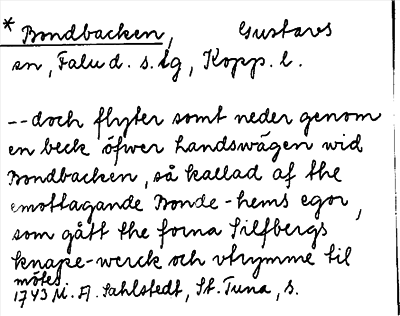 * Bondbacken, Gustavs
sn, Falu d. s. tg, Kopp. l.
-- doch flyter somt neder genom
en beck öfwer landswägen wid
Bondbacken, så kallad af the
emottagande Bonde-hems egor,
som gått the forna Silfbergs
knape-werck och vtrymme til
mötes.
1743 M. A. Sahlstedt, St. Tuna, s.